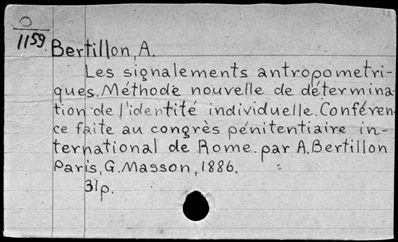 O
1159
Bertillon, A.
Les signalements antropometri-
ques. Méthode nouvelle de détermina-
tion de l'identité individuelle. Conféren-
ce faite au congrès pénitentiaire in-
ternational de Rome. par A. Bertillon
Paris, G. Masson, 1886.
31p.